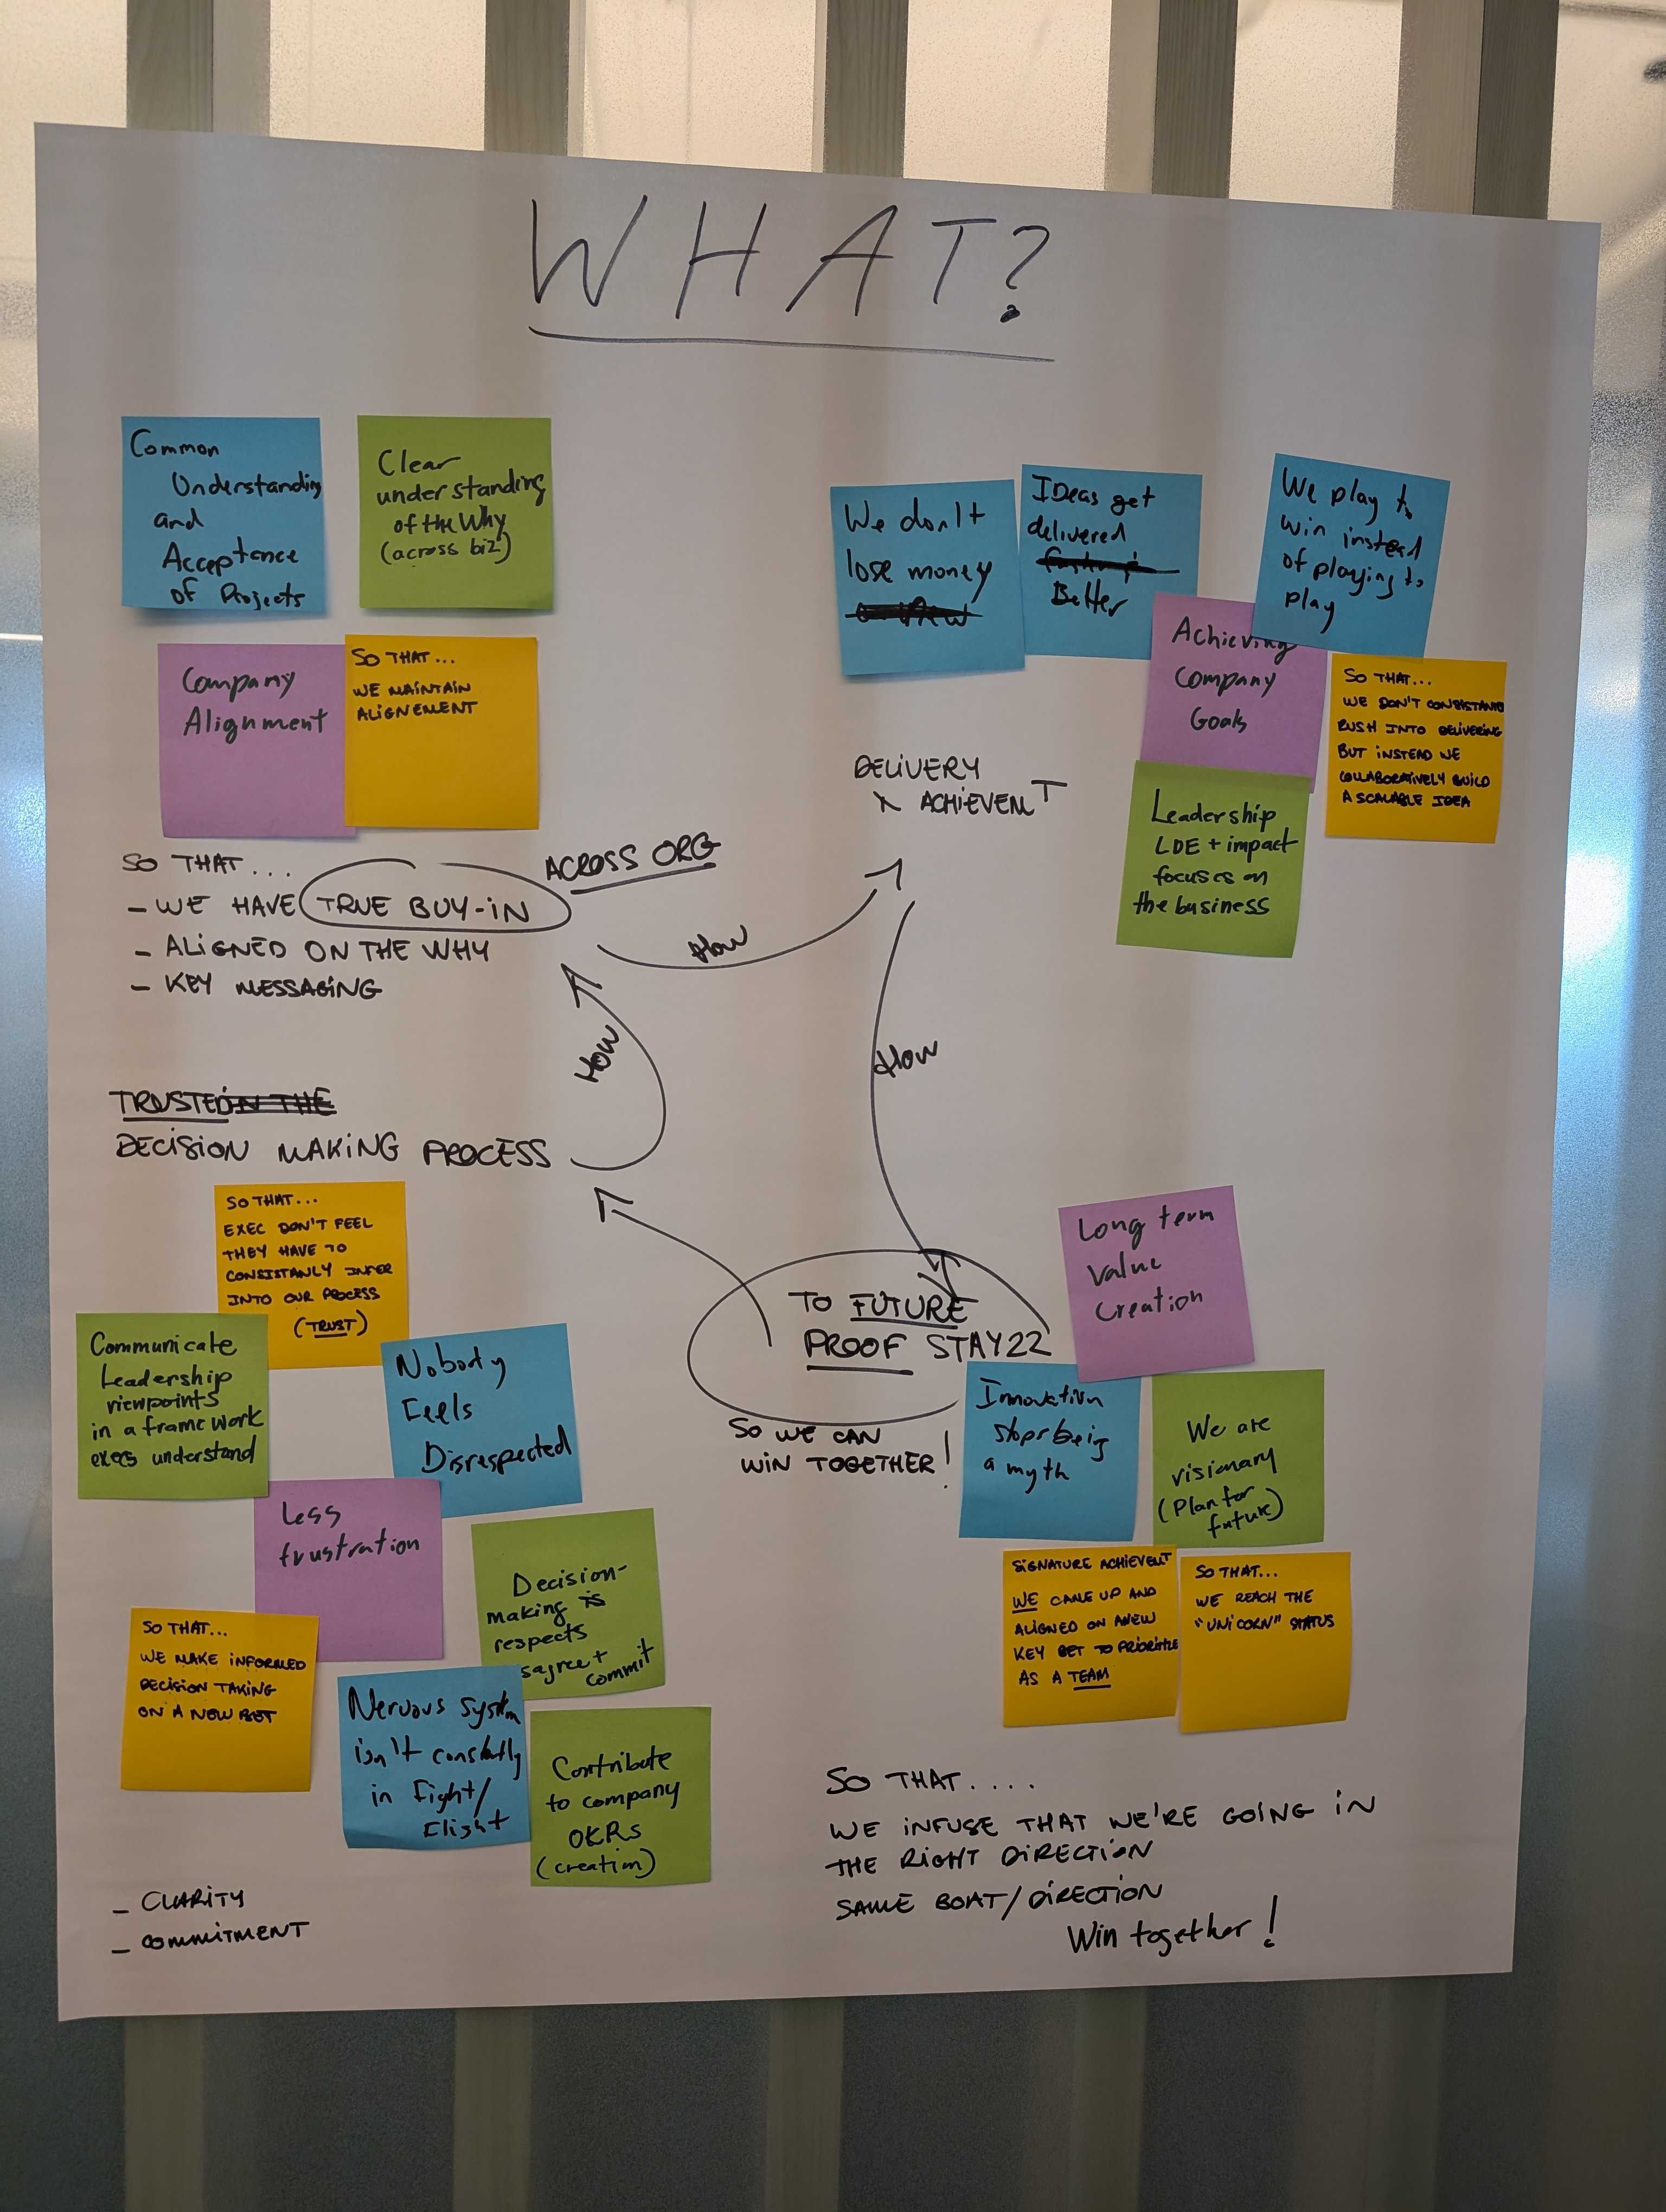 WHAT?
Common
Understanding
and
Acceptance
of Projects
Clear
understanding
of the Why
(across biz)
Company
Alignment
SO THAT...
WE MAINTAIN
ALIGNEMENT
SO THAT...
- WE HAVE TRUE BUY-IN
ACROSS ORG
- ALIGNED ON THE WHY
- KEY MESSAGING
We don't
lose money
IDeas get
delivered
Better
We play to
win instead
of playing to
play
Achieving
Company
Goals
SO THAT...
WE DON'T CONSISTANTLY
RUSH INTO DELIVERING
BUT INSTEAD WE
COLLABORATIVELY BUILD
A SCALABLE IDEA
Leadership
LDE + impact
focuses on
the business
DELIVERY
& ACHIEVEMT
HOW
HOW
HOW
TRUSTED IN THE
DECISION MAKING PROCESS
SO THAT...
EXEC DON'T FEEL
THEY HAVE TO
CONSISTANLY INFER
INTO OUR PROCESS
(TRUST)
Communicate
Leadership
viewpoints
in a frame work
execs understand
Nobody
Feels
Disrespected
Less
frustration
Decision-
making is
respects
sagree +
commit
SO THAT...
WE MAKE INFORMED
DECISION TAKING
ON A NEW BET
Nervous system
isn't constantly
in Fight/
Flight
Contribute
to company
OKRs
(creation)
- CLARITY
- COMMITMENT
TO FUTURE
PROOF STAY22
SO WE CAN
WIN TOGETHER!
Long term
Value
Creation
Innovation
stops being
a myth
We are
visionary
(Plan for
future)
SIGNATURE ACHIEVEMT
WE CAME UP AND
ALIGNED ON A NEW
KEY BET TO PRIORITIZE
AS A TEAM
SO THAT...
WE REACH THE
"UNICORN" STATUS
SO THAT....
WE INFUSE THAT WE'RE GOING IN
THE RIGHT DIRECTION
SAME BOAT/DIRECTION
Win together!